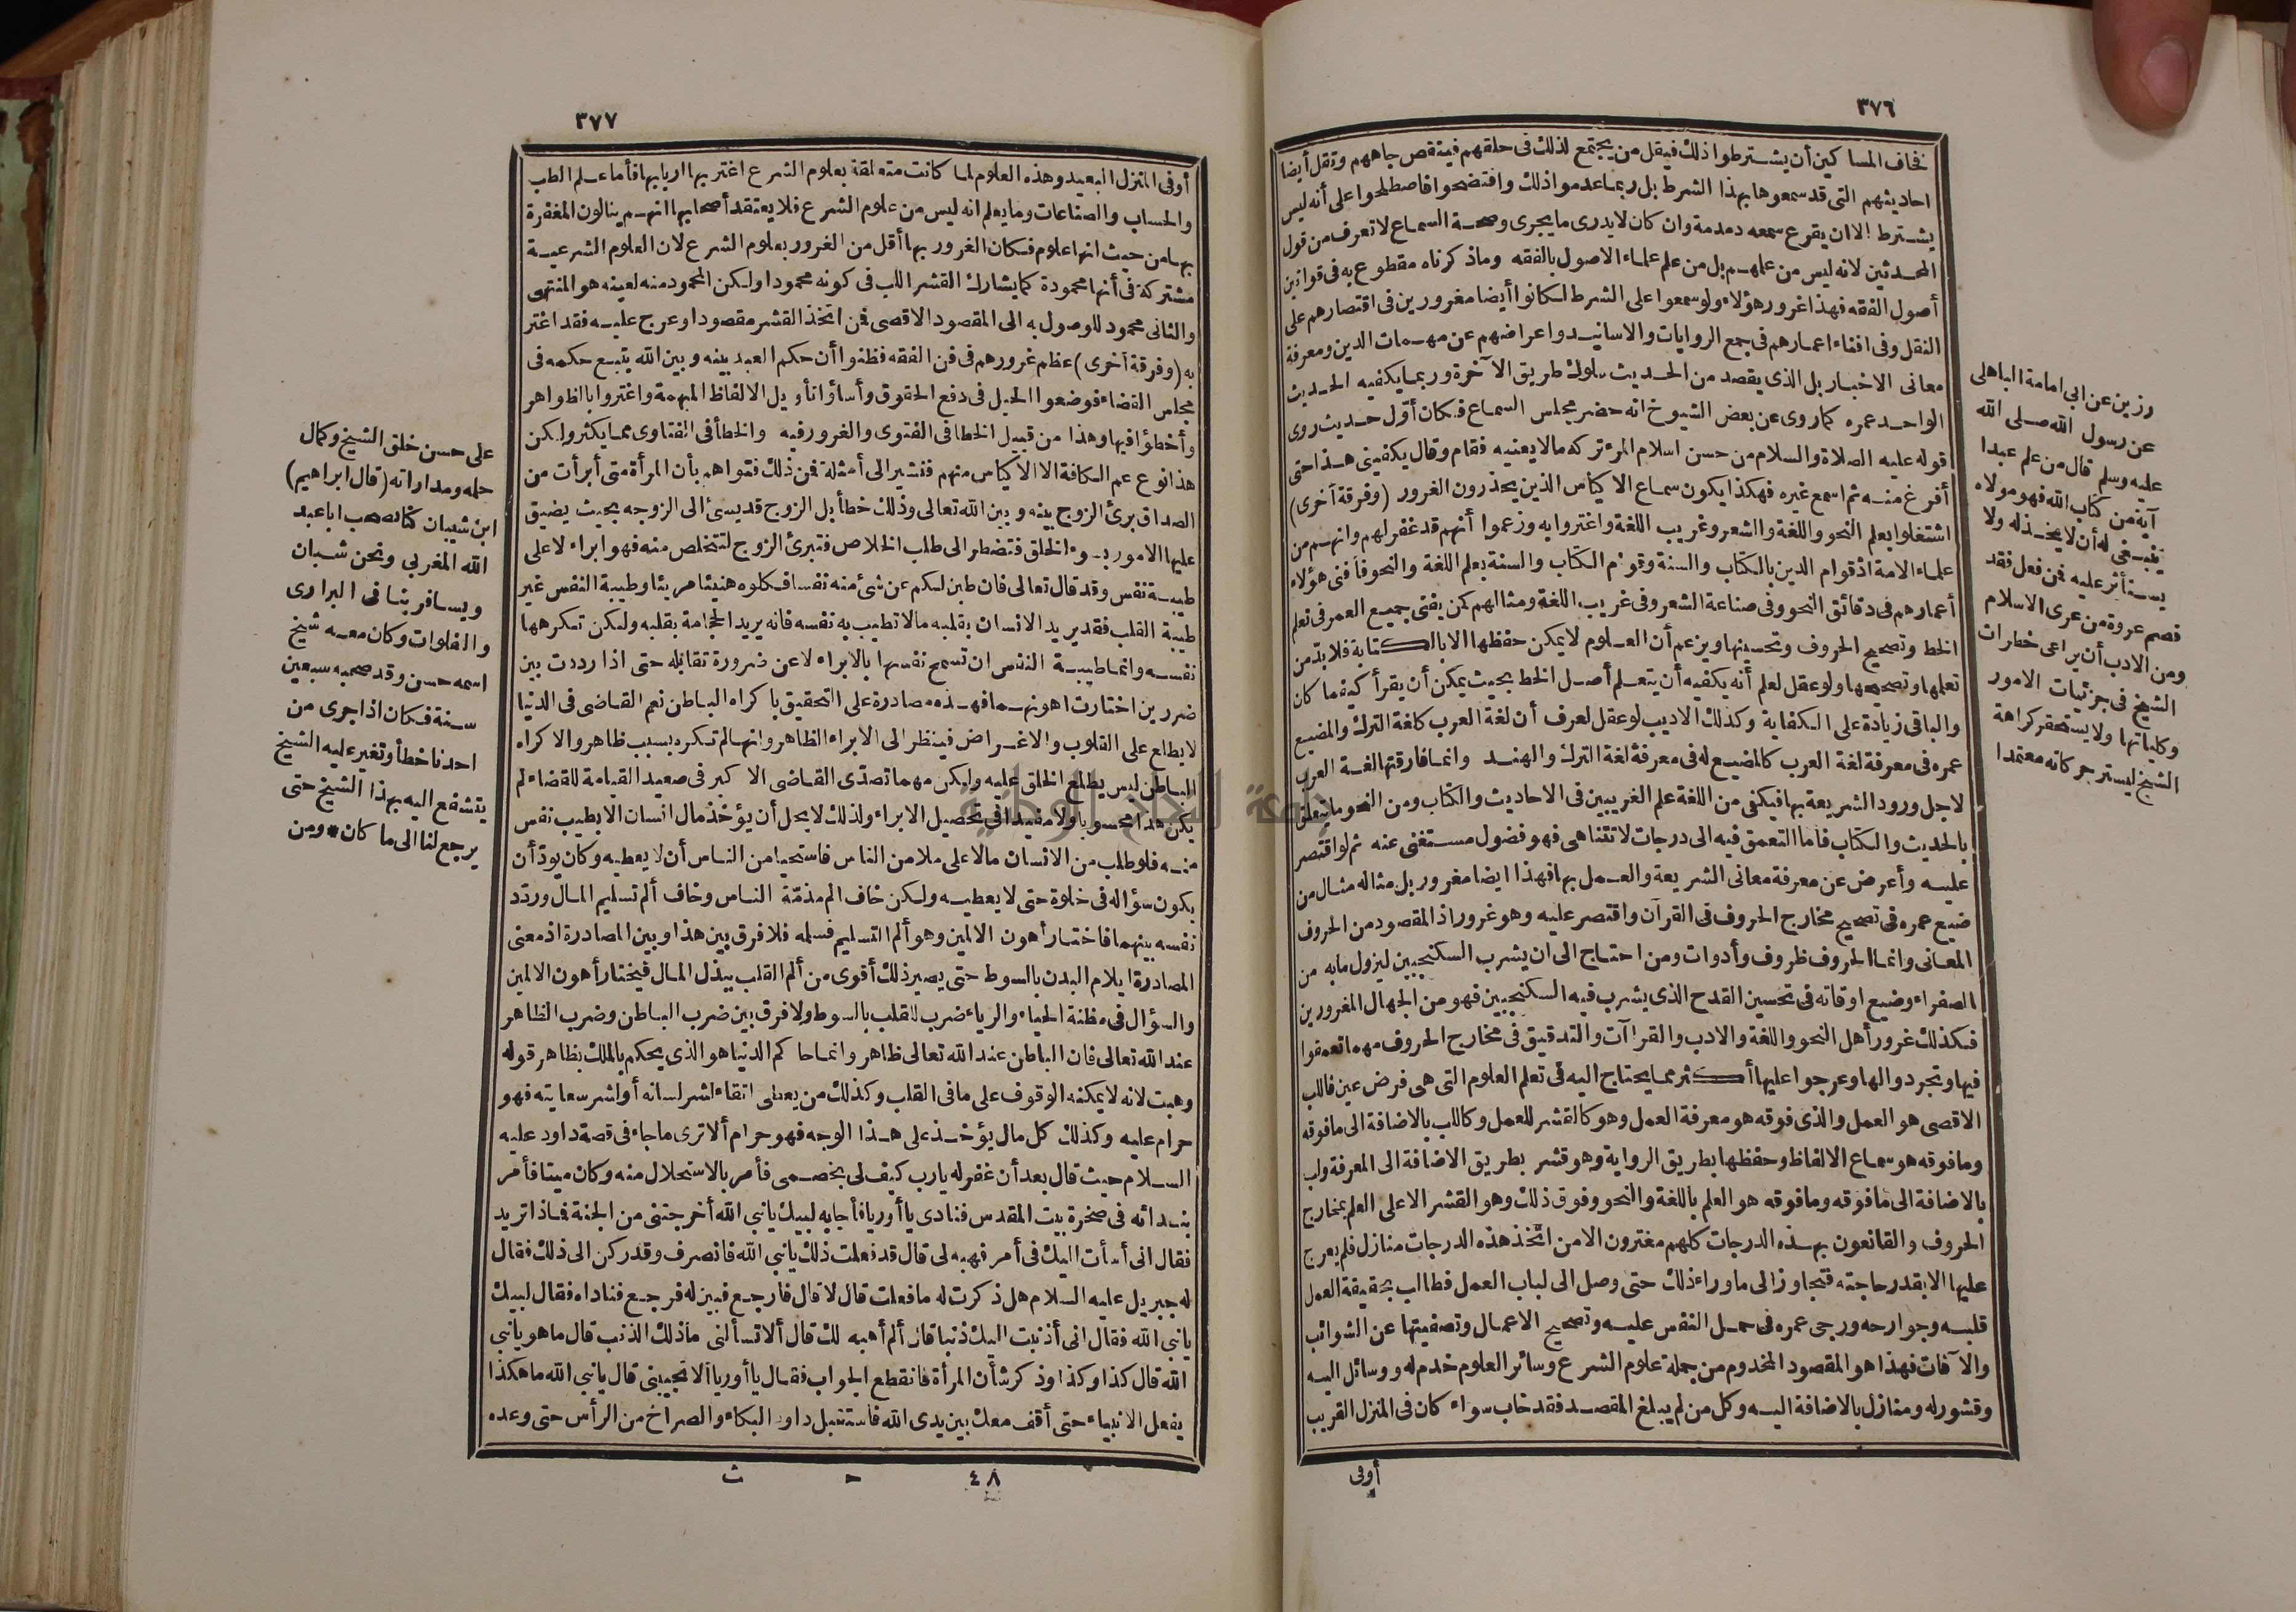 ٣٧٦
فخاف المساكين أن يشترطوا ذلك فيقل من يجتمع لذلك فى حلقهم فينقص جاههم وتقل أيضا
احاديثهم التى قد سمعوها بهذا الشرط بل ربما عدموا ذلك وافتضحوا فاصطلحوا على أنه ليس
يشترط الا ان يقرع سمعه دمدمة وان كان لا يدرى ما يجرى وصحة السماع لا تعرف من قول
المحدثين لانه ليس من علمهم بل من علم علماء الاصول بالفقه وماذكرناه مقطوع به فى قوانين
أصول الفقه فهذا غرور هؤلاء ولو سمعوا على الشرط لكانوا أيضا مغرورين فى اقتصارهم على
النقل وفى افناء اعمارهم فى جمع الروايات والاسانيد واعراضهم عن مهمات الدين ومعرفة
معانى الاخبار بل الذى يقصد من الحديث سلوك طريق الآخرة وربما يكفيه الحديث
الواحد عمره كما روى عن بعض الشيوخ انه حضر مجلس السماع فكان أول حديث روى
قوله عليه الصلاة والسلام من حسن اسلام المرء تركه مالا يعنيه فقام وقال يكفينى هذا حتى
أفرغ منه ثم اسمع غيره فهكذا يكون سماع الاكياس الذين يحذرون الغرور (وفرقة أخرى)
اشتغلوا بعلم النحو واللغة والشعر وغريب اللغة واغتروا به وزعموا أنهم قد غفر لهم وانهم من
علماء الامة اذ قوام الدين بالكتاب والسنة وقوام الكتاب والسنة بعلم اللغة والنحو فأفنى هؤلاء
أعمارهم فى دقائق النحو وفى صناعة الشعر وفى غريب اللغة ومثالهم كمن يفنى جميع العمر فى تعلم
الخط وتصحيح الحروف وتحسينها ويزعم أن العلوم لا يمكن حفظها الا بالكتابة فلا بد من
تعلمها وتصحيحها ولو عقل لعلم أنه يكفيه أن يتعلم أصل الخط بحيث يمكن أن يقرأ كيفما كان
والباقى زيادة على الكفاية وكذلك الاديب لو عقل لعرف أن لغة العرب كلغة الترك والمضيع
عمره فى معرفة لغة العرب كالمضيع له فى معرفة لغة الترك والهند وانما فارقتها لغة العرب
لاجل ورود الشريعة بها فيكفى من اللغة علم الغريبين فى الاحاديث والكتاب ومن النحو ما يتعلق
بالحديث والكتاب فاما التعمق فيه الى درجات لا تتناهى فهو فضول مستغنى عنه ثم لو اقتصر
عليه وأعرض عن معرفة معانى الشريعة والعمل بها فهذا ايضا مغرور بل مثاله مثال من
ضيع عمره فى تصحيح مخارج الحروف فى القرآن واقتصر عليه وهو غرور اذ المقصود من الحروف
المعانى وانما الحروف ظروف وأدوات ومن احتاج الى ان يشرب السكنجبين ليزول ما به من
الصفراء وضيع اوقاته فى تحسين القدح الذى يشرب فيه السكنجبين فهو من الجهال المغرورين
فكذلك غرور أهل النحو واللغة والادب والقراآت والتدقيق فى مخارج الحروف مهما تعمقوا
فيها وتجردوا لها وعرجوا عليها أكثر مما يحتاج اليه فى تعلم العلوم التى هى فرض عين فاللب
الاقصى هو العمل والذى فوقه هو معرفة العمل وهو كالقشر للعمل وكاللب بالاضافة الى ما فوقه
وما فوقه هو سماع الالفاظ وحفظها بطريق الرواية وهو قشر بطريق الاضافة الى المعرفة ولب
بالاضافة الى ما فوقه وما فوقه هو العلم باللغة والنحو وفوق ذلك وهو القشر الاعلى العلم بمخارج
الحروف والقانعون بهذه الدرجات كلهم مغترون الا من اتخذ هذه الدرجات منازل فلم يعرج
عليها الا بقدر حاجته فتجاوز الى ما وراء ذلك حتى وصل الى لباب العمل فطالب بحقيقة العمل
قلبه وجوارحه ورجى عمره فى حمل النفس عليه وتصحيح الاعمال وتصفيتها عن الشوائب
والآفات فهذا هو المقصود المخدوم من جملة علوم الشرع وسائر العلوم خدم له ووسائل اليه
وقشور له ومنازل بالاضافة اليه وكل من لم يبلغ المقصد فقد خاب سواء كان فى المنزل القريب
أوفى
رزين عن ابى امامة الباهلى
عن رسول الله صلى الله
عليه وسلم قال من علم عبدا
آية من كتاب الله فهو مولاه
ينبغى له أن لا يخذله ولا
يستأثر عليه فمن فعل فقد
فصم عروة من عرى الاسلام
ومن الادب أن يراعى خطرات
الشيخ فى جزئيات الامور
وكلياتها ولا يستحقر كراهة
الشيخ ليسير حركاته معتمدا
٣٧٧
أوفى المنزل البعيد وهذه العلوم لما كانت متعلقة بعلوم الشرع اغتر بها اربابها فأما علم الطب
والحساب والصناعات وما يعلم انه ليس من علوم الشرع فلا يعتقد أصحابها انهم ينالون المغفرة
بها من حيث انها علوم فكان الغرور بها أقل من الغرور بعلوم الشرع لان العلوم الشرعية
مشتركة فى أنها محمودة كما يشارك القشر اللب فى كونه محمودا ولكن المحمود منه لعينه هو المنتهى
والثانى محمود للوصول به الى المقصود الاقصى فمن اتخذ القشر مقصودا وعرج عليه فقد اغتر
به (وفرقة أخرى) عظم غرورهم فى فن الفقه فظنوا أن حكم العبد بينه وبين الله يتبع حكمه فى
مجلس القضاء فوضعوا الحيل فى دفع الحقوق وأساؤا تأويل الالفاظ المبهمة واغتروا بالظواهر
وأخطؤا فيها وهذا من قبيل الخطا فى الفتوى والغرور فيه والخطأ فى الفتاوى مما يكثر ولكن
هذا نوع عم الكافة الا الاكياس منهم فنشير الى أمثلة فمن ذلك فتواهم بأن المرأة متى أبرأت من
الصداق برئ الزوج بينه وبين الله تعالى وذلك خطأ بل الزوج قد يسئ الى الزوجة بحيث يضيق
عليها الامور بسوء الخلق فتضطر الى طلب الخلاص فتبرئ الزوج لتتخلص منه فهو ابراء لا على
طيبة نفس وقد قال تعالى فان طبن لكم عن شئ منه نفسا فكلوه هنيئا مريئا وطيبة النفس غير
طيبة القلب فقد يريد الانسان بقلبه مالا تطيب به نفسه فانه يريد الحجامة بقلبه ولكن تكرهها
نفسه وانما طيبة النفس ان تسمح نفسها بالابراء لا عن ضرورة تقابله حتى اذا رددت بين
ضررين اختارت اهونهما فهذه مصادرة على التحقيق باكراه الباطن نعم القاضى فى الدنيا
لا يطلع على القلوب والاغراض فينظر الى الابراء الظاهر وانها لم تكره بسبب ظاهر والاكراه
الباطن ليس يطلع الخلق عليه ولكن مهما تصدى القاضى الاكبر فى صعيد القيامة للقضاء لم
يكن هذا محسوبا ولا مفيدا فى تحصيل الابراء ولذلك لا يحل أن يؤخذ مال انسان الا بطيب نفس
منه فلو طلب من الانسان مالا على ملا من الناس فاستحيا من الناس أن لا يعطيه وكان يود أن
يكون سؤاله فى خلوة حتى لا يعطيه ولكن خاف الم مذمة الناس وخاف ألم تسليم المال وردد
نفسه بينهما فاختار أهون الالمين وهو ألم التسليم فسلمه فلا فرق بين هذا وبين المصادرة اذ معنى
المصادرة ايلام البدن بالسوط حتى يصير ذلك أقوى من ألم القلب ببذل المال فيختار أهون الالمين
والسؤال فى مظنة الحياء والرياء ضرب للقلب بالسوط ولا فرق بين ضرب الباطن وضرب الظاهر
عند الله تعالى فان الباطن عند الله تعالى ظاهر وانما حاكم الدنيا هو الذى يحكم بالملك بظاهر قوله
وهبت لانه لا يمكنه الوقوف على ما فى القلب وكذلك من يعطى اتقاء لشر لسانه أو لشر سعايته فهو
حرام عليه وكذلك كل مال يؤخذ على هذا الوجه فهو حرام ألا ترى ماجاء فى قصة داود عليه
السلام حيث قال بعد أن غفر له يا رب كيف لى بخصمى فأمر بالاستحلال منه وكان ميتا فأمر
بندائه فى صخرة بيت المقدس فنادى يا أوريا فأجابه لبيك يانبى الله أخرجتنى من الجنة فماذا تريد
فقال انى أسأت اليك فى أمر فهبه لى قال قد فعلت ذلك يانبى الله فانصرف وقد ركن الى ذلك فقال
له جبريل عليه السلام هل ذكرت له ما فعلت قال لا قال فارجع فبين له فرجع فناداه فقال لبيك
يانبى الله فقال انى أذنبت اليك ذنبا قال ألم أهبه لك قال ألا تسألنى ماذلك الذنب قال ما هو يانبى
الله قال كذا وكذا وذكر شأن المرأة فانقطع الجواب فقال يا أوريا ألا تجيبنى قال يانبى الله ما هكذا
يفعل الانبياء حتى أقف معك بين يدى الله فاستقبل داود البكاء والصراخ من الرأس حتى وعده
٤٨ ح ث
على حسن خلق الشيخ وكمال
حلمه ومداراته (قال ابراهيم)
ابن شيبان كنا نصحب ابا عبد
الله المغربى ونحن شبان
ويسافر بنا فى البرارى
والفلوات وكان معه شيخ
اسمه حسن وقد صحبه سبعين
سنة فكان اذا جرى من
احدنا خطأ وتغير عليه الشيخ
يتشفع اليه بهذا الشيخ حتى
يرجع لنا الى ما كان * ومن
جامعة النجاح الوطنية